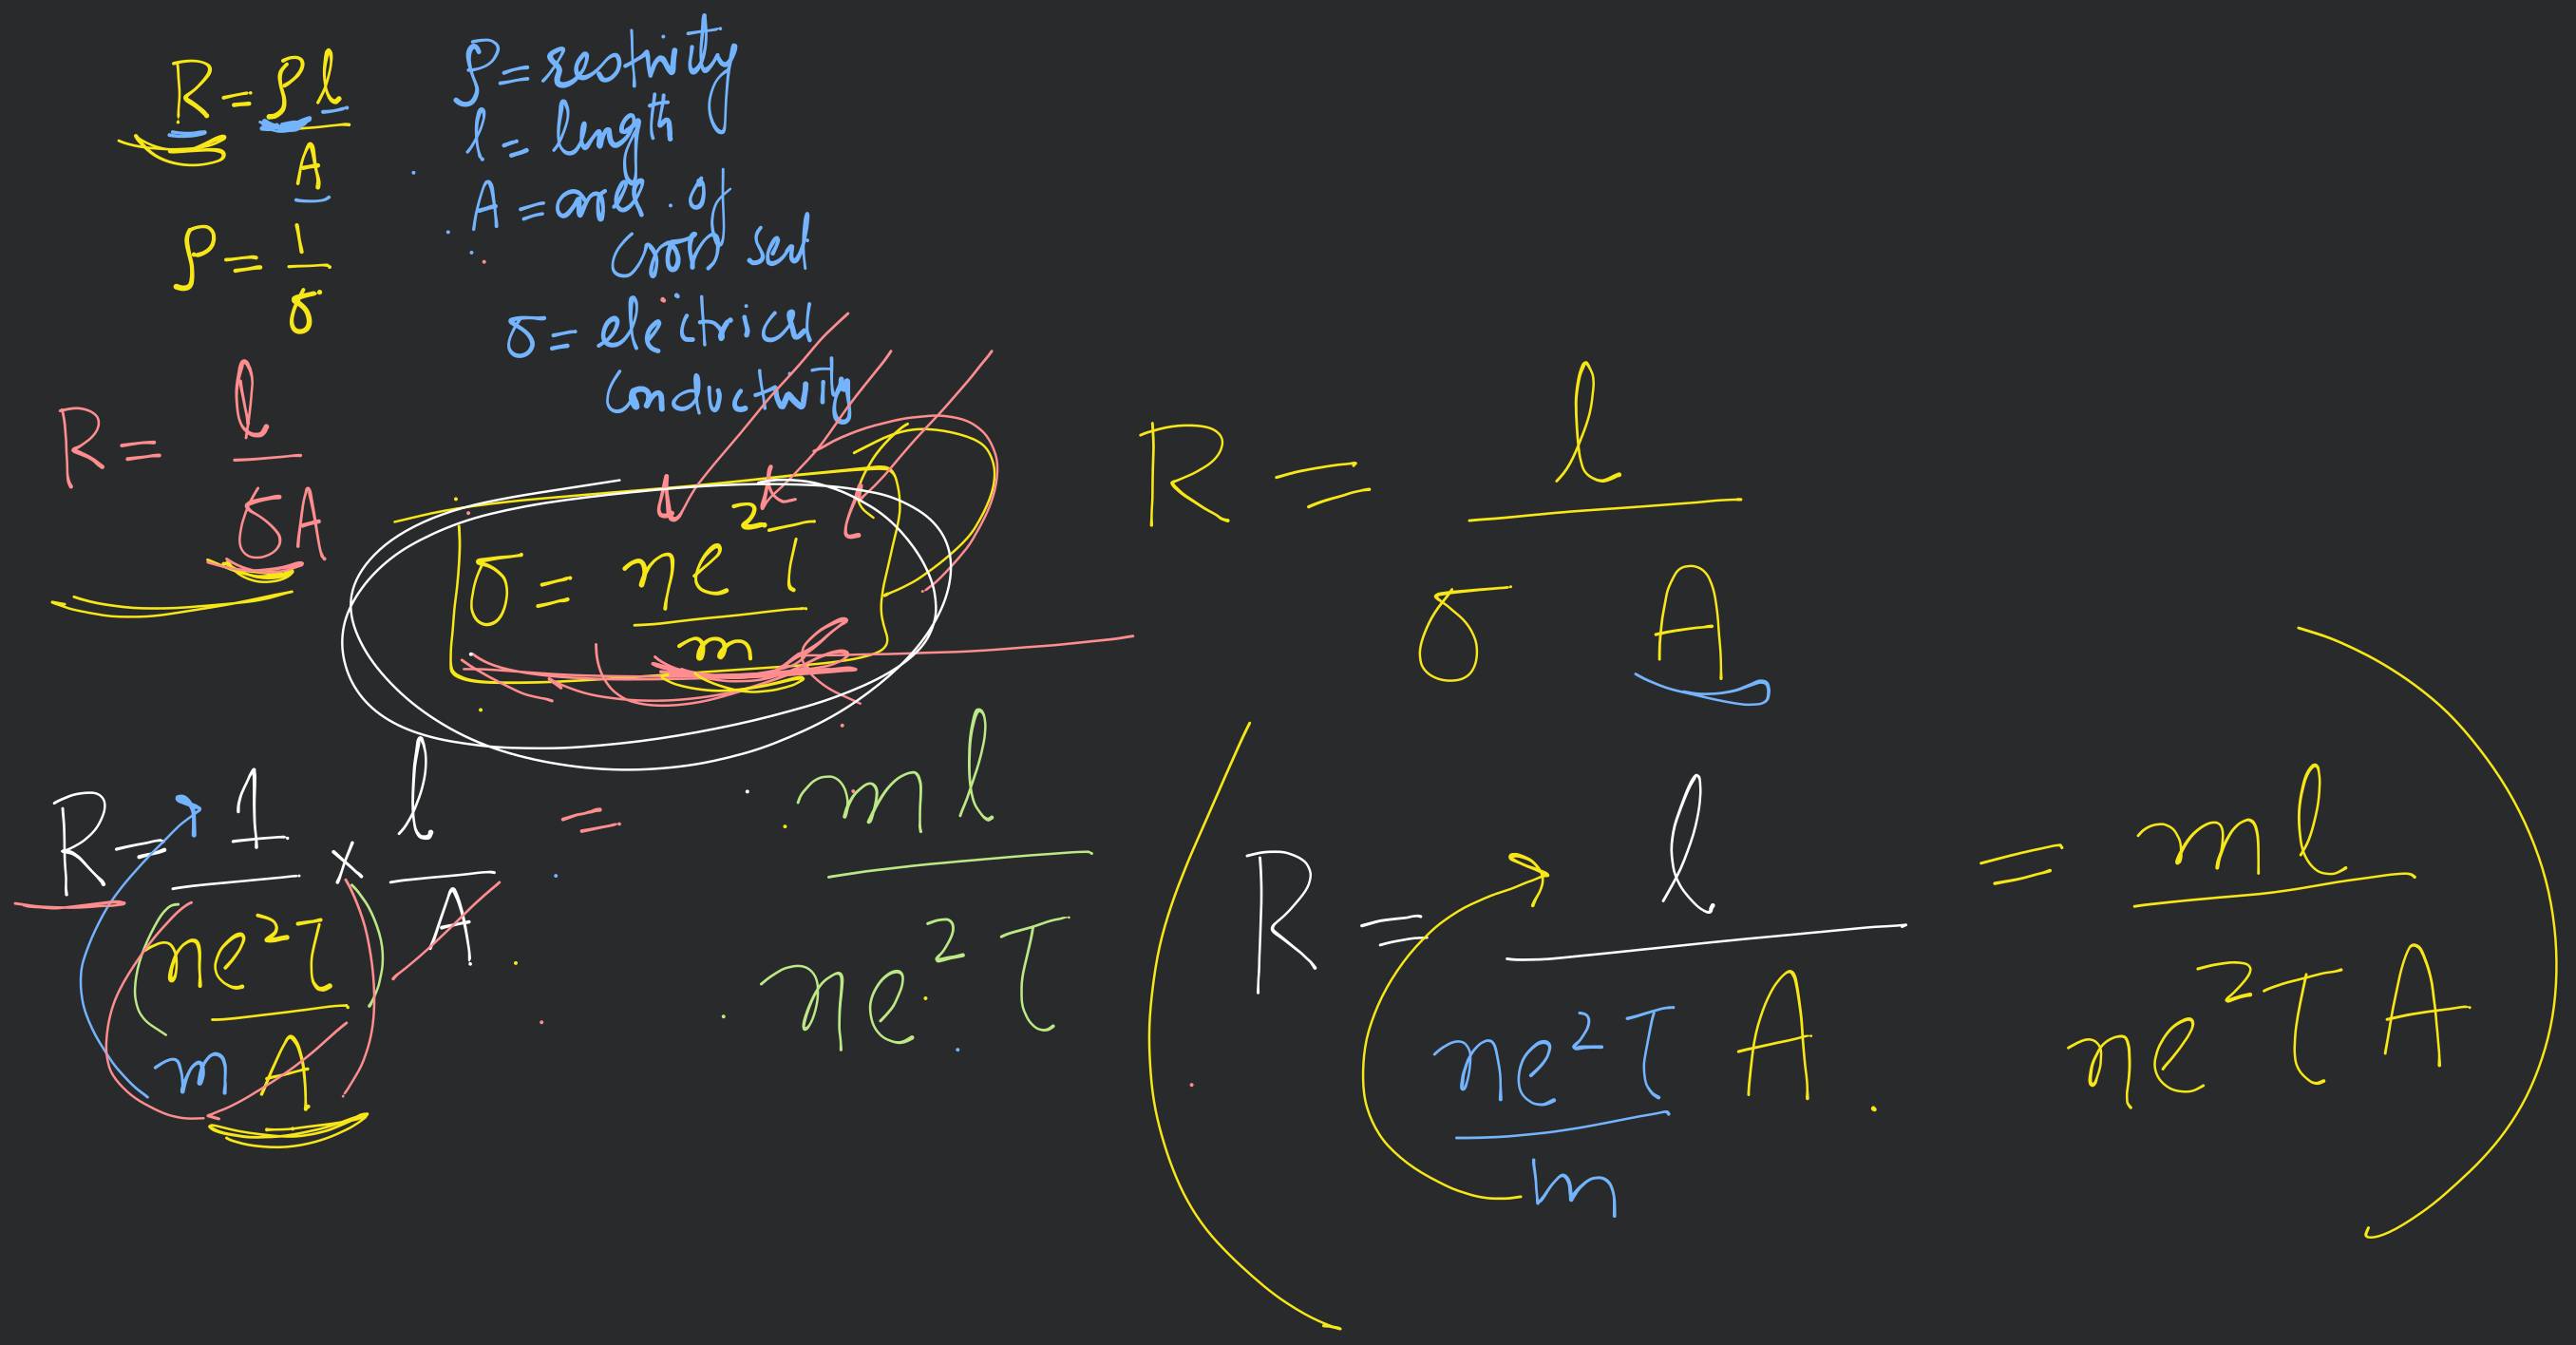 R = ρl
A
ρ = 1
σ
ρ = restivity
l = length
A = area of
cross sect
σ = electrical
conductivity
R = l
σA
σ = ne²τ
m
R = l
σ A
R = 1 × l
ne²τ A
m A
= ml
ne²τ
R = l = ml
ne²τ A ne²τ A
m